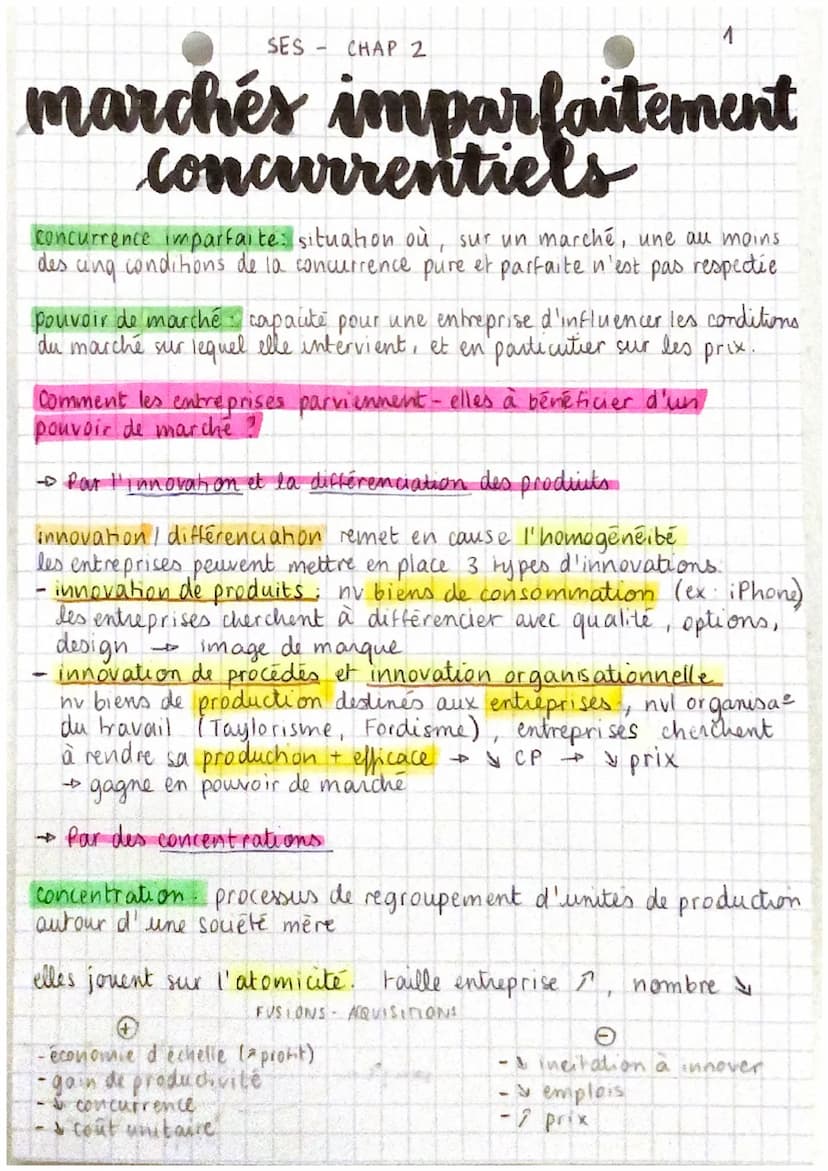 SES - CHAP 2
1
marchés imparfaitement
concurrentiels
concurrence imparfaite: situation où, sur un marché, une au moins
des cinq conditions de la concurrence pure et parfaite n'est pas respectée
pouvoir de marché: capacité pour une entreprise d'influencer les conditions
du marché sur lequel elle intervient, et en particulier sur les prix.
Comment les entreprises parviennent-elles à bénéficier d'un
pouvoir de marché ?
→ Par l'innovation et la différenciation des produits
innovation / différenciation remet en cause l'homogénéité
les entreprises peuvent mettre en place 3 types d'innovations:
- innovation de produits: nv biens de consommation (ex: iPhone)
les entreprises cherchent à différencier avec qualité, options,
design → image de marque
- innovation de procédés et innovation organisationnelle
nv biens de production destinés aux entreprises, nvl organisa°
du travail (Taylorisme, Fordisme), entreprises cherchent
à rendre sa production + efficace → ↘ CP → ↘ prix
→ gagne en pouvoir de marché
→ Par des concentrations
concentration: processus de regroupement d'unités de production
autour d'une société mère
elles jouent sur l'atomicité. taille entreprise ↗, nombre ↘
FUSIONS - AQUISITIONS
+
-
- économie d'échelle (↗ profit)
- gain de productivité
- ↘ concurrence
- ↘ coût unitaire
- ↘ incitation à innover
- ↘ emplois
- ↗ prix